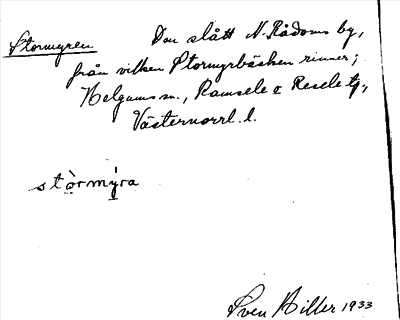 Stormyren Don slått N. Rådoms by,
från vilken Stormyrbäcken rinner;
Helgums sn., Ramsele o Resele tg.,
Västernorrl. l.
stòrmýra
Sven Hiller 1933